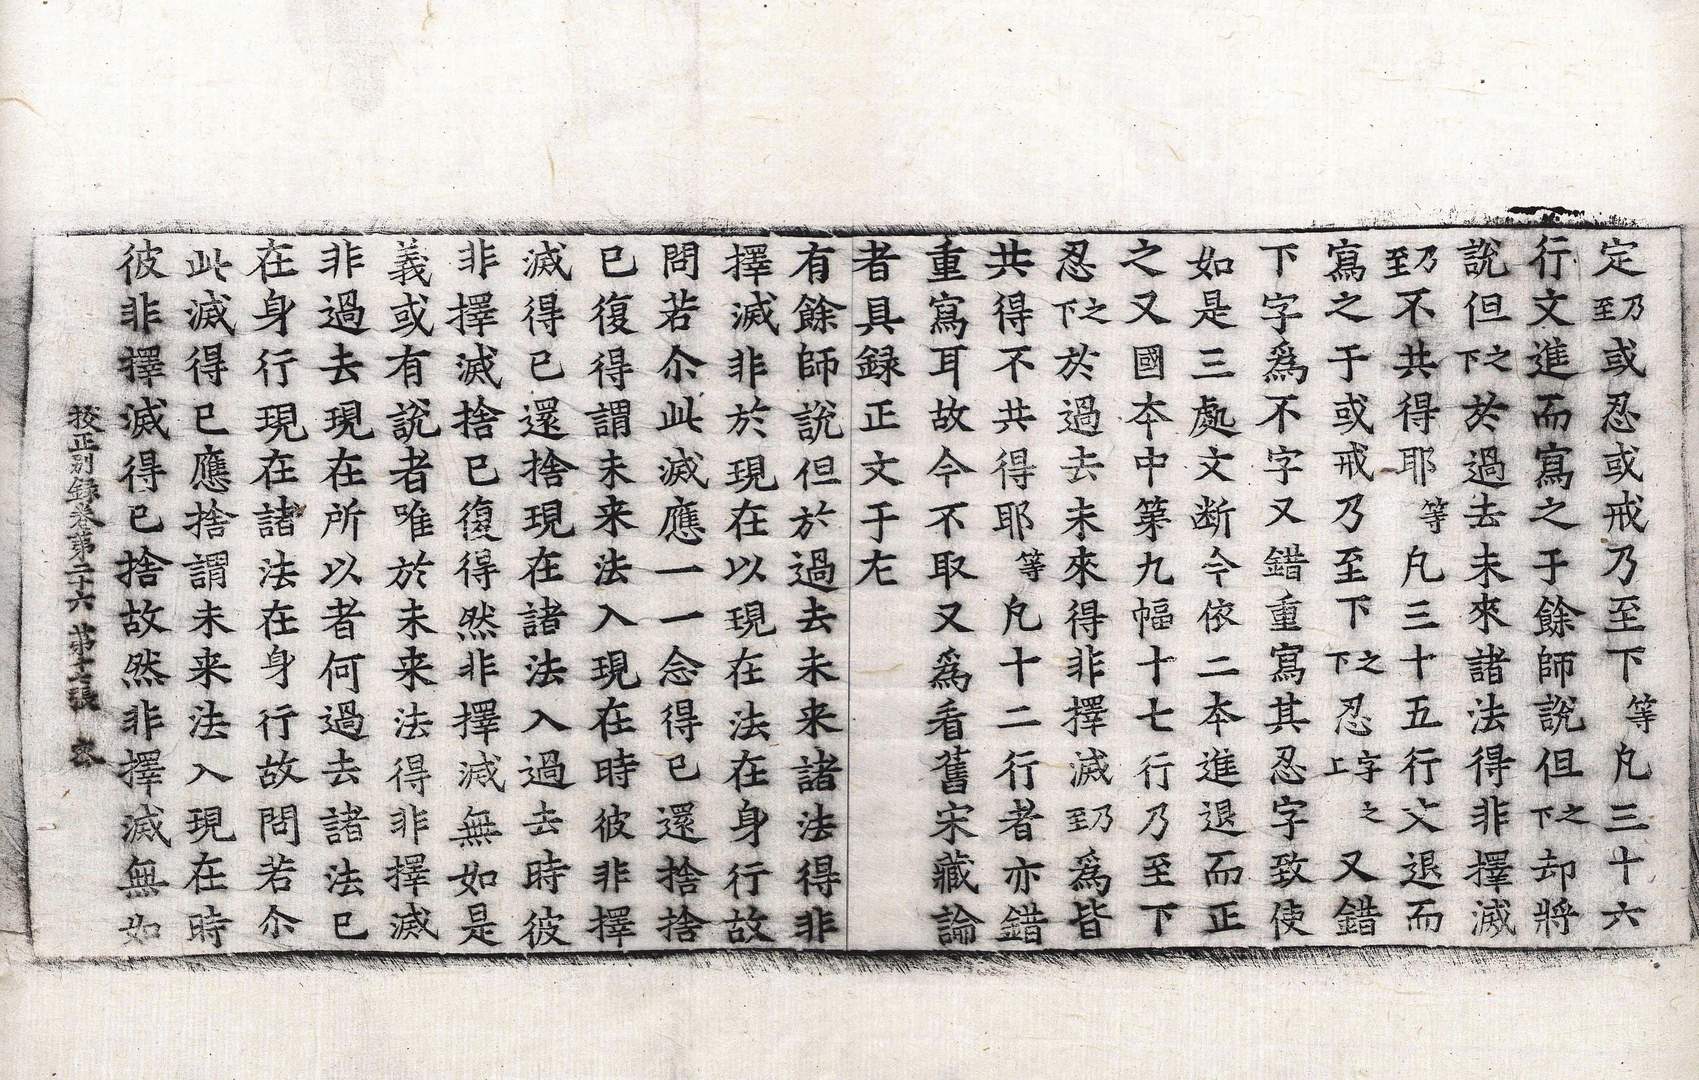 定乃至或忍或戒乃至下等凡三十六
行文進而寫之于餘師說但之下却將
說但之下於過去未來諸法得非擇滅
乃至不共得耶等凡三十五行文退而
寫之于或戒乃至下之下忍字之上又錯
下字爲不字又錯重寫其忍字致使
如是三處文断今依二夲進退而正
之又國夲中第九幅十七行乃至下
忍之下於過去未來得非擇滅乃至爲皆
共得不共得耶等凡十二行者亦錯
重寫耳故今不取又爲看舊宋藏論
者具録正文于左
有餘師說但於過去未来諸法得非
擇滅非於現在以現在法在身行故
問若尒此滅應一一念得已還捨捨
已復得謂未来法入現在時彼非擇
滅得已還捨現在諸法入過去時彼
非擇滅捨已復得然非擇滅無如是
義或有說者唯於未来法得非擇滅
非過去現在所以者何過去諸法已
在身行現在諸法在身行故問若尒
此滅得已應捨謂未来法入現在時
彼非擇滅得已捨故然非擇滅無如
挍正别錄卷第二十六 第十七張